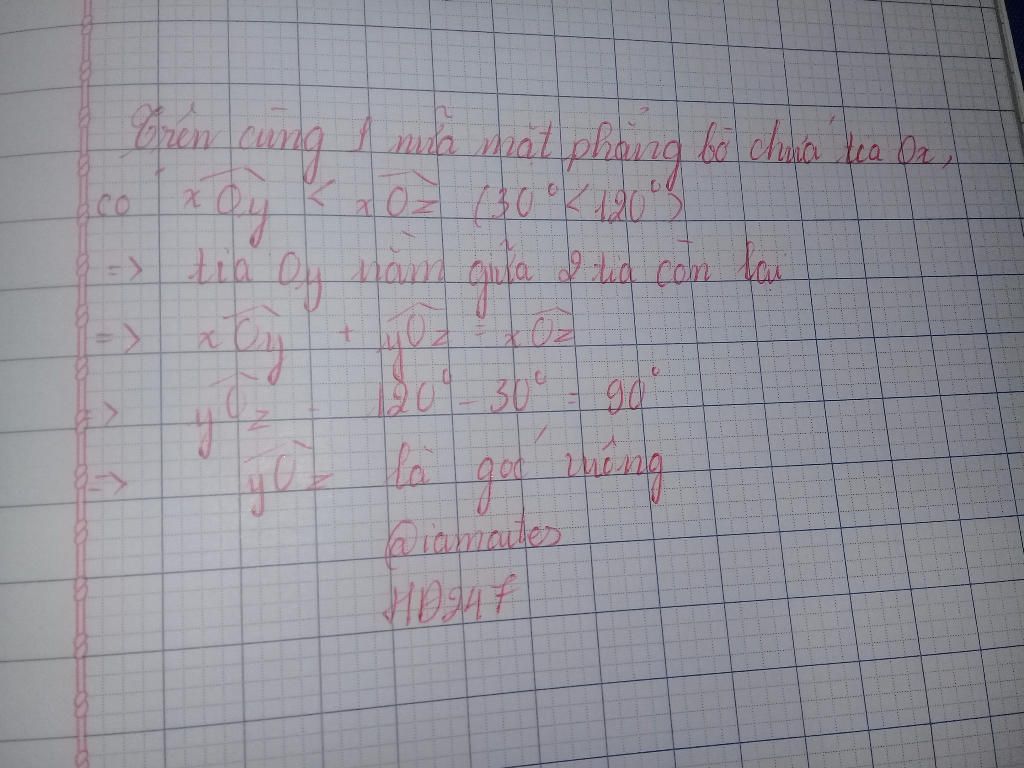 Trên cùng 1 nửa mặt phẳng bờ chứa tia Ox,
có xOy < xOz (30° < 120°)
=> tia Oy nằm giữa 2 tia còn lại
=> xOy + yOz = xOz
=> yOz = 120° - 30° = 90°
=> yOz là góc vuông
HD247